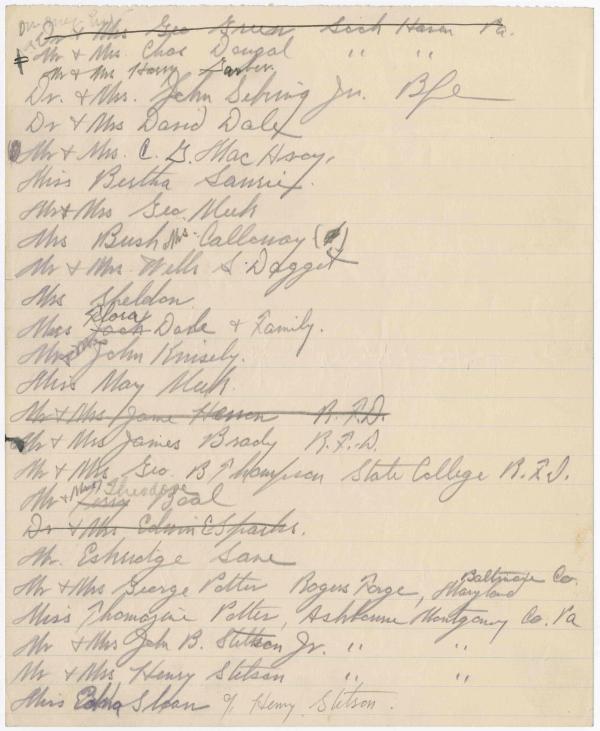 Dr & Mrs Geo Green Lock Haven Pa.
Mr & Mrs. Chas Dougal " "
Mr & Mrs Harry Garber.
Dr. & Mrs. John Sebring Jr. Bfe
Dr & Mrs David Dale
Mr & Mrs. C. G.
Miss Bertha
Mr & Mrs Geo. Meek
Mrs Bush Mrs. Calloway
Mr & Mrs. Wells S. Dagget
Mrs Sheldon
Flora
Miss Jack Dale & Family.
Mr & Mrs John Knisely.
Miss May Meek.
Mr & Mrs Jame Herron R.F.D.
Mr & Mrs James Brady R.F.D.
Mr & Mrs. Geo. B Thompson State College R.F.D.
Mr & Mrs Theodore Boal
Dr & Mrs. Edwin E Sparks.
Mr. Eskridge Lane
Mr & Mrs George Potter Rogers Forge, Baltimore Co. Maryland
Miss Thomazine Potter, Ashbourne Montgomy Co. Pa
Mr & Mrs John B. Stetson Jr. " "
Mr & Mrs. Henry Stetson " "
Miss Edna Sloan % Henry Stetson.